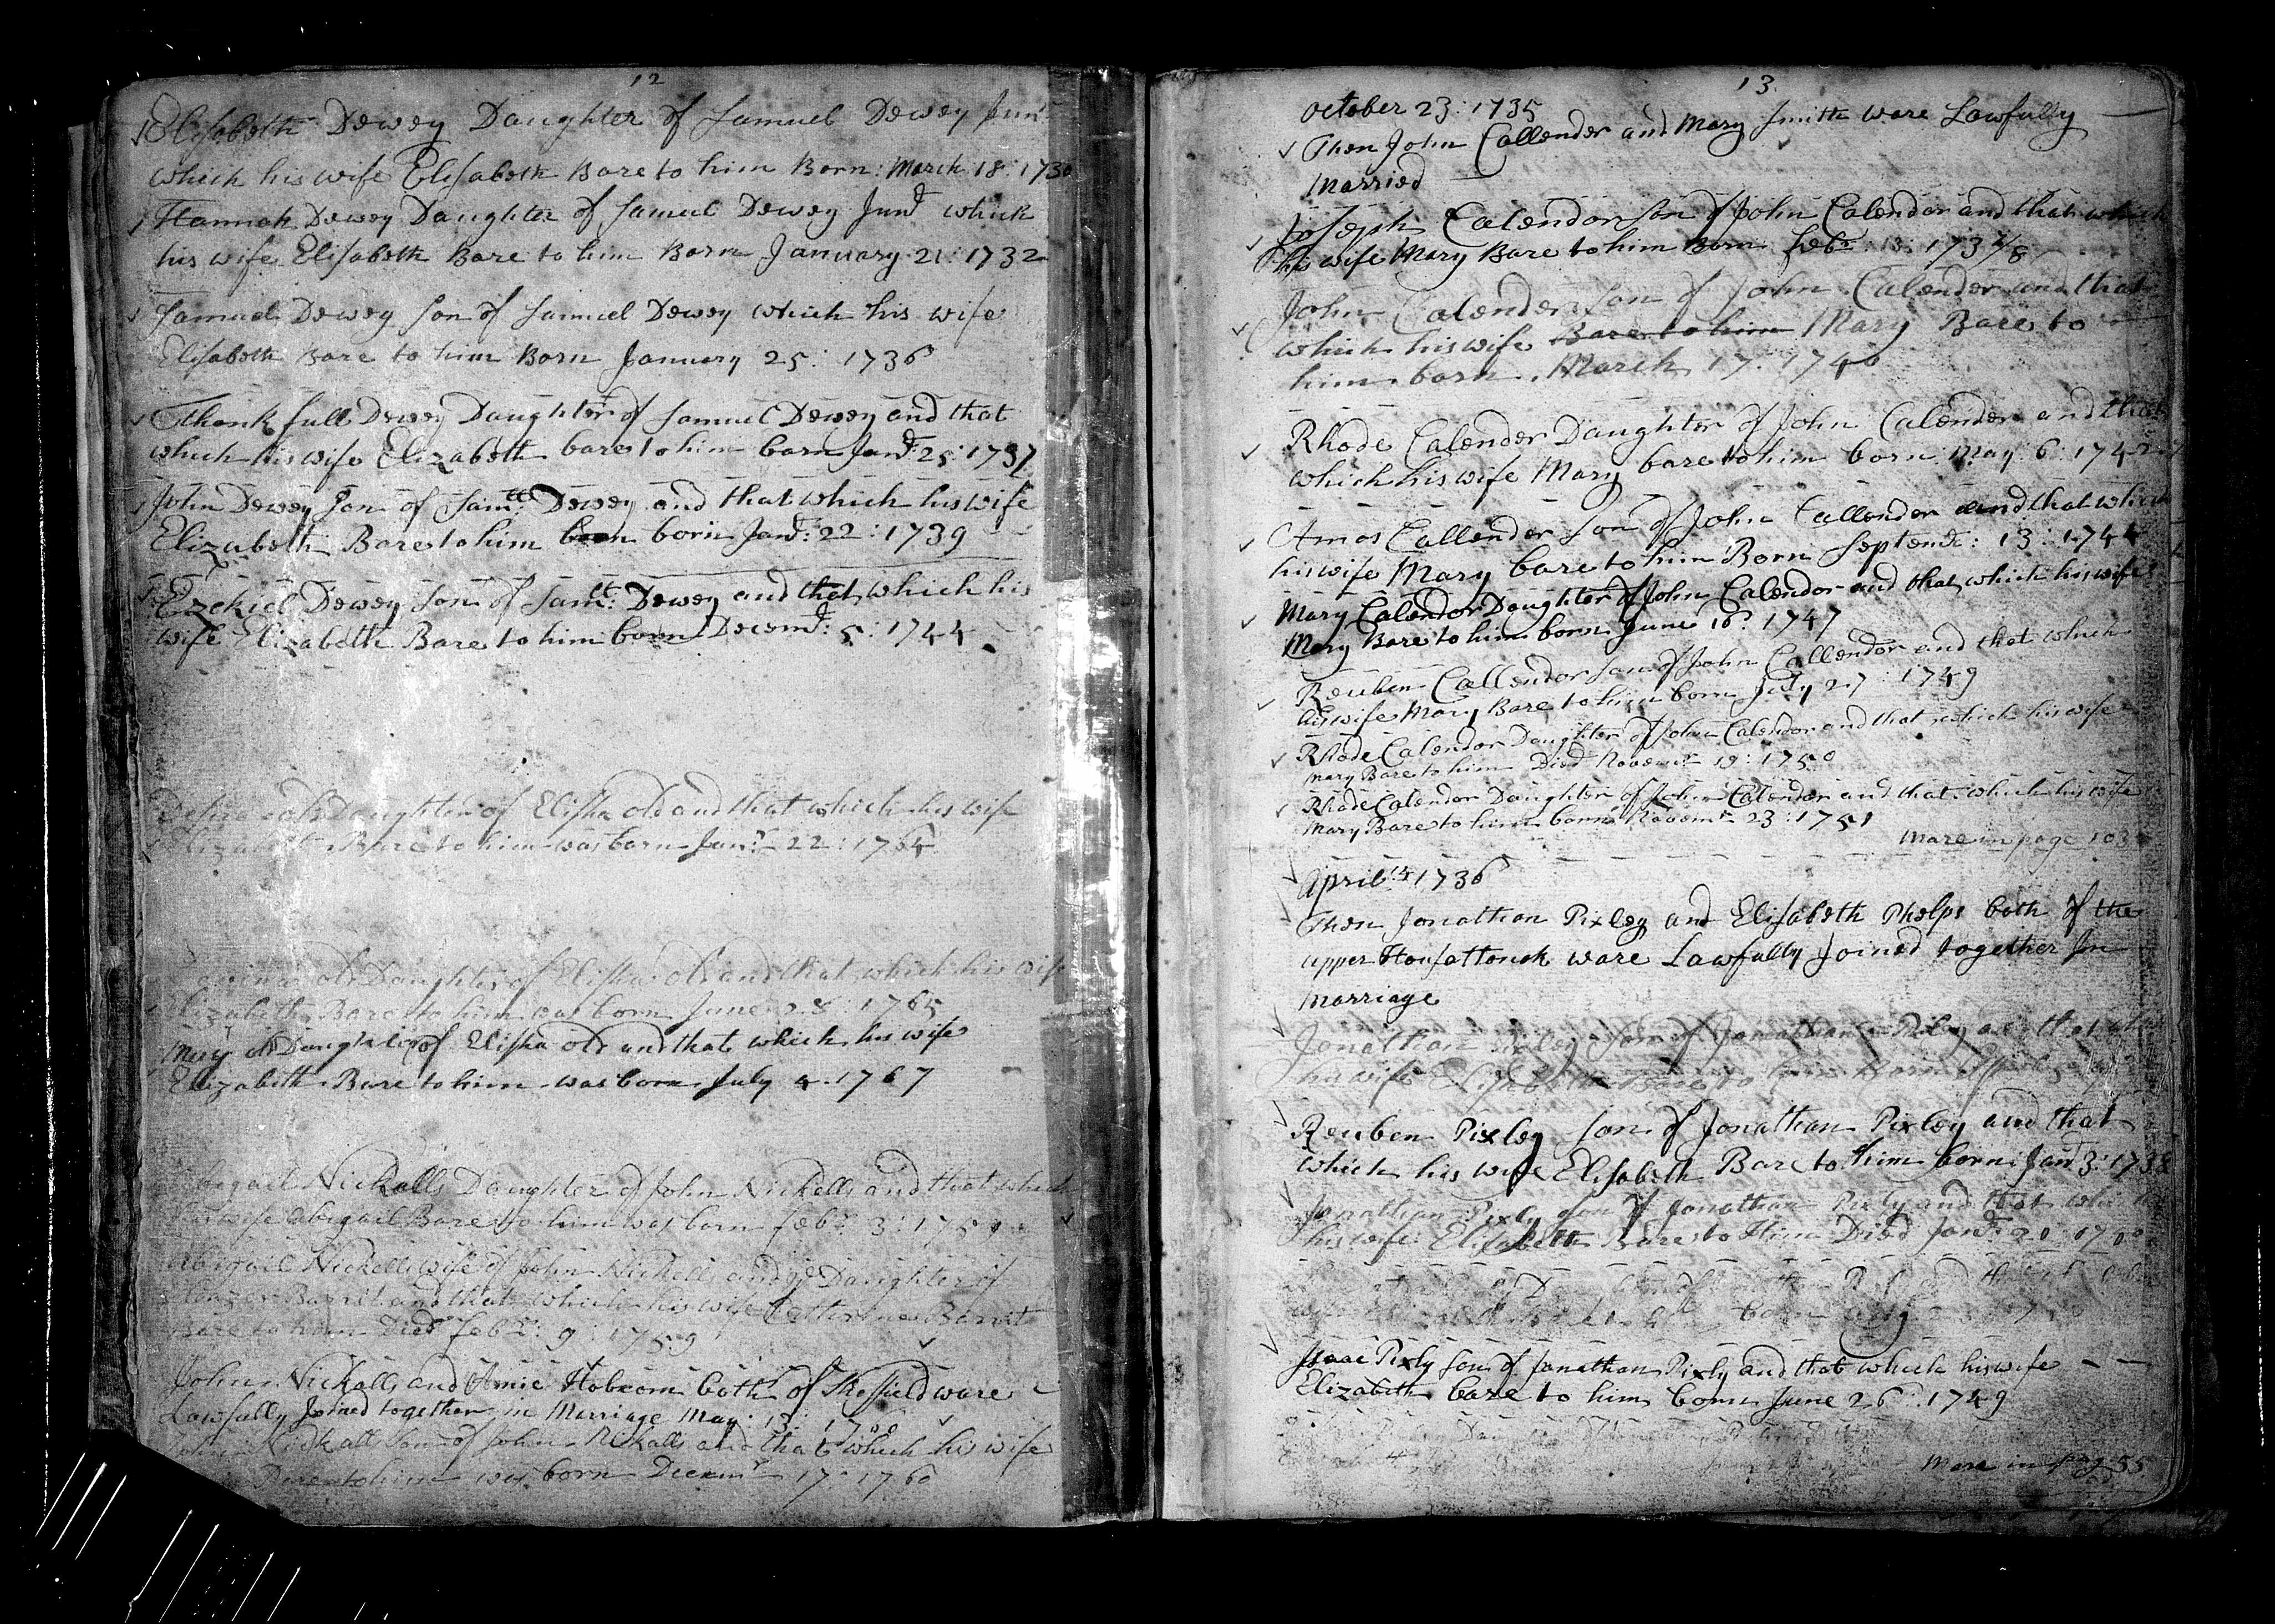 12
Elisabeth Dewey Daughter of Samuel Dewey Junr
which his wife Elisabeth Bare to him Born: March 18: 1730
Hannah Dewey Daughter of Samuel Dewey Junr which
his wife Elisabeth Bare to him Born January 21: 1732
Samuel Dewey son of Samuel Dewey which his wife
Elisabeth Bare to him Born January 25: 1736
Thankfull Dewey Daughter of Samuel Dewey and that
which his wife Elizabeth bare to him born Janr: 25: 1737
John Dewey Son of Samll: Dewey and that which his wife
Elizabeth Bare to him born Janr: 22: 1739
Ezekiel Dewey Son of Samll: Dewey and that which his
wife Elizabeth Bare to him born Decemr: 5: 1744
Daughter of Elisha old and that which his wife
Elizabeth Bare to him was born Janr 22: 1764
old Daughter of Elisha old and that which his wife
Elizabeth Bare to him was born June 28: 1765
Mary old Daughter of Elisha old and that which his wife
Elizabeth Bare to him was born July 4 1767
Abegail Nickalls Daughter of John Nickells and that which
his wife abigail Bare to him was born febr 3: 1759
Abigail Nickells wife of John Nickells and ye Daughter of
Barrit and that which his wife Catherine Barrit
Bare to him Died febr: 9: 1759
John Nickalls and Amie Hobcom both of Sheffield ware
Lawfully Joined together in Marriage May: 13: 1760
John Nickalls Son of John Nickalls and that which his wife
Bare to him was born Decemr 17: 1760
13
October 23: 1735
Then John Callender and Mary Smith ware Lawfully
Married
Joseph Calender son of John Calender and that which
his wife Mary Bare to him Born febr: 13: 1737/8
John Calender son of John Calender and that
which his wife Bare to him Mary Bare to
him born March 17. 1740
Rhode Calender Daughter of John Calender and that
which his wife Mary bare to him born May: 6: 1742
Amos Callender son of John Callender and that which
his wife Mary bare to him Born Septemr: 13: 1744
Mary Calendor Daughter of John Calendor and that which his wife
Mary Bare to him born June 16: 1747
Reuben Callendor son of John Callendor and that which
his wife Mary Bare to him born July 27: 1749
Rhode Calendor Daughter of John Calendor and that which his wife
Mary Bare to him Died Novemr 19: 1750
Rhode Calendor Daughter of John Calendor and that which his wife
Mary Bare to him born Novemr 23: 1751
More in page 103
April 14 1736
Then Jonathan Pixley and Elisabeth Phelps both of the
upper Housattonok ware Lawfully Joined together In
Marriage
Jonathan Pixley Son of Jonathan Pixley and that
his wife Elisabeth Bare to him Born
Reuben Pixley Son of Jonathan Pixley and that
which his wife Elisabeth Bare to him born: Janr 3: 1738
Jonathan Pixly son of Jonathan Pixly and that which
his wife Elisabeth Bare to Him Died Janr
born
Isaac Pixly Son of Jonathan Pixly and that which his wife
Elizabeth bare to him born June 26: 1749
More in pag 55